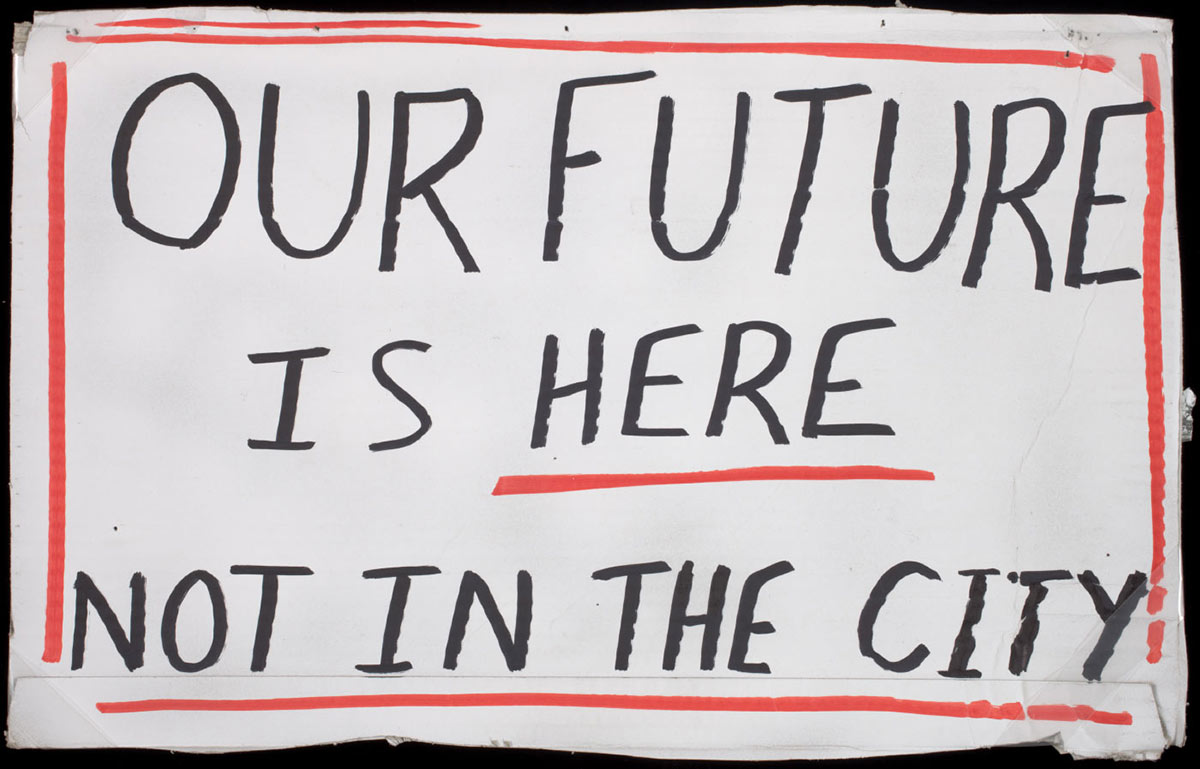 OUR FUTURE
IS HERE
NOT IN THE CITY